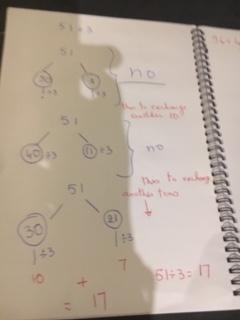 51÷3
51
no
÷3
to exchange
another 10
51
40 ÷3 11 ÷3
no
51
to exchange
another
30 21
÷3 ÷3
10 + 7
= 17
51÷3=17